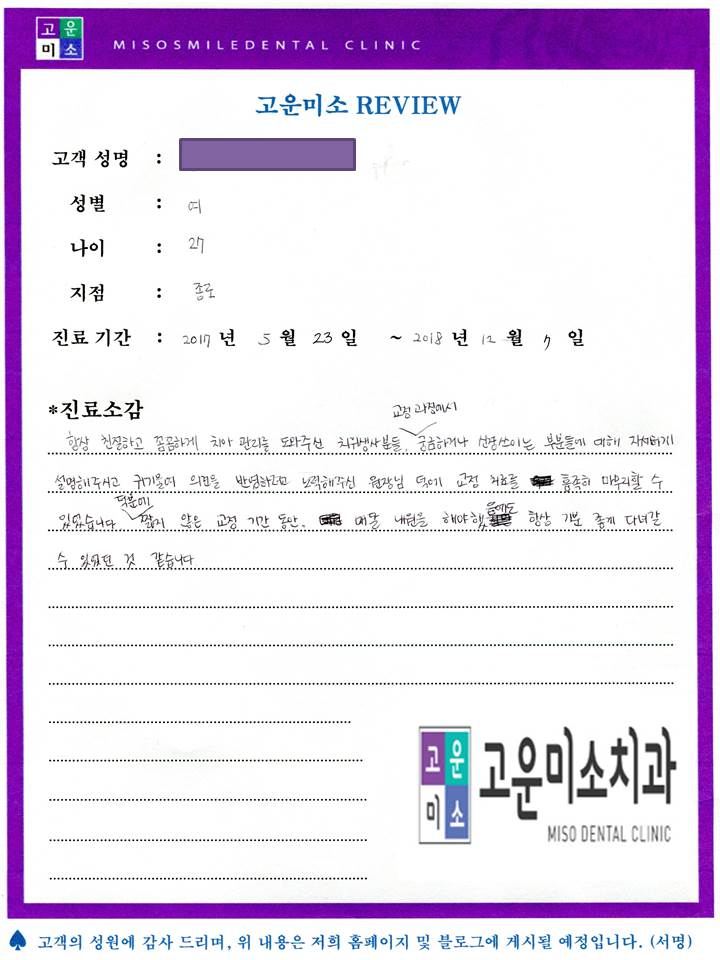 고운
미소
MISOSMILEDENTAL CLINIC
고운미소 REVIEW
고객 성명 :
성별 : 여
나이 : 27
지점 : 종로
진료 기간 : 2017 년 5 월 23 일 ~ 2018 년 12 월 7 일
*진료소감
교정 과정에서
항상 친절하고 꼼꼼하게 치아 관리를 도와주신 치위생사분들, 궁금하거나 신경쓰이는 부분들에 대해 자세하게
설명해주시고 귀기울여 의견을 반영하려고 노력해주신 원장님 덕에 교정 치료를 흡족히 마무리할 수
덕분에
있었습니다 짧지 않은 교정 기간 동안, 매달 내원을 해야했음에도 항상 기분 좋게 다녀갈
수 있었던 것 같습니다
고운
미소
고운미소치과
MISO DENTAL CLINIC
♠ 고객의 성원에 감사 드리며, 위 내용은 저희 홈페이지 및 블로그에 게시될 예정입니다. (서명)